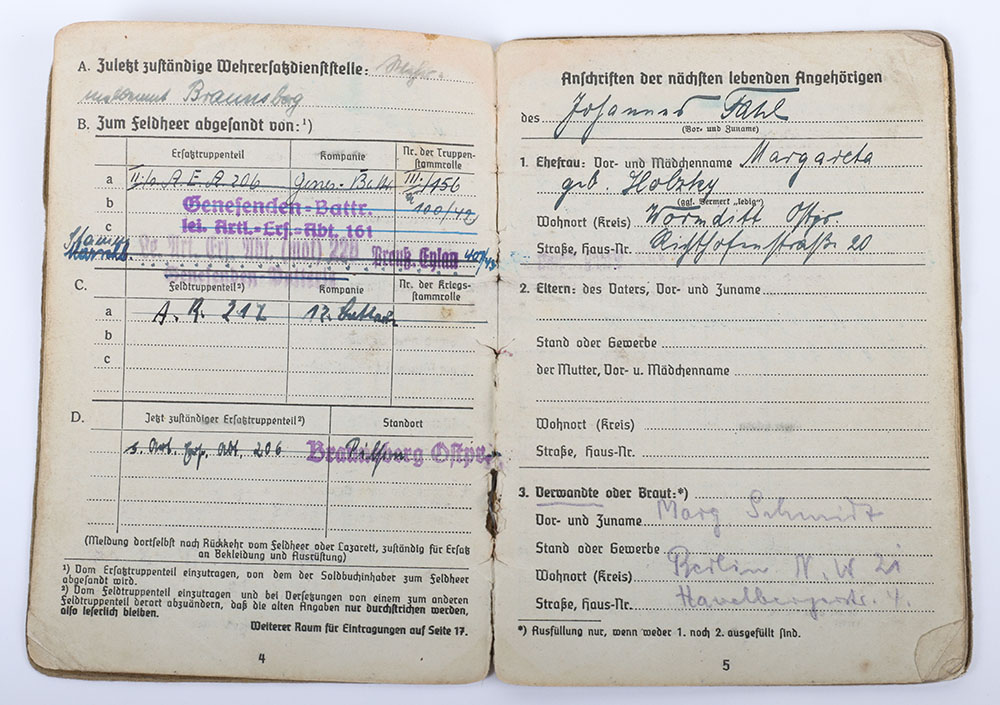 A. Zuletzt zuständige Wehrersatzdienststelle: Wehr-
meldeamt Braunsberg
B. Zum Feldheer abgesandt von:¹)
Ersatztruppenteil Kompanie Nr. der Truppen-
stammrolle
a II./s. A. E. A. 206 Genes.-Battr. III./156
b Genesenden-Battr. 100/42
c lei. Artl.-Ers.-Abt. 161
Art. Ers. Abt. (mot) 228 Preuß. Eylau
Genesenden Batterie
C. Feldtruppenteil²) Kompanie Nr. der Kriegs-
stammrolle
a A. R. 217 12. Batterie
b
c
D. Jetzt zuständiger Ersatztruppenteil²) Standort
s. Art. Ers. Abt. 206 Braunsberg Ostpr.
(Meldung dortselbst nach Rückkehr vom Feldheer oder Lazarett, zuständig für Ersatz
an Bekleidung und Ausrüstung)
¹) Vom Ersatztruppenteil einzutragen, von dem der Soldbuchinhaber zum Feldheer
abgesandt wird.
²) Vom Feldtruppenteil einzutragen und bei Versetzungen von einem zum anderen
Feldtruppenteil derart abzuändern, daß die alten Angaben nur durchstrichen werden,
also leserlich bleiben.
Weiterer Raum für Eintragungen auf Seite 17.
4
Anschriften der nächsten lebenden Angehörigen
des Johannes Fahl
(Vor- und Zuname)
1. Ehefrau: Vor- und Mädchenname Margareta
geb. Holzky
(ggf. Vermerk „ledig")
Wohnort (Kreis) Wormditt Ostpr.
Straße, Haus-Nr. Richthofenstraße 20
2. Eltern: des Vaters, Vor- und Zuname
Stand oder Gewerbe
der Mutter, Vor- u. Mädchenname
Wohnort (Kreis)
Straße, Haus-Nr.
3. Verwandte oder Braut:*)
Vor- und Zuname Marg Schmidt
Stand oder Gewerbe
Wohnort (Kreis) Berlin N. W 21
Straße, Haus-Nr. Havelbergerstr. 4.
*) Ausfüllung nur, wenn weder 1. noch 2. ausgefüllt sind.
5